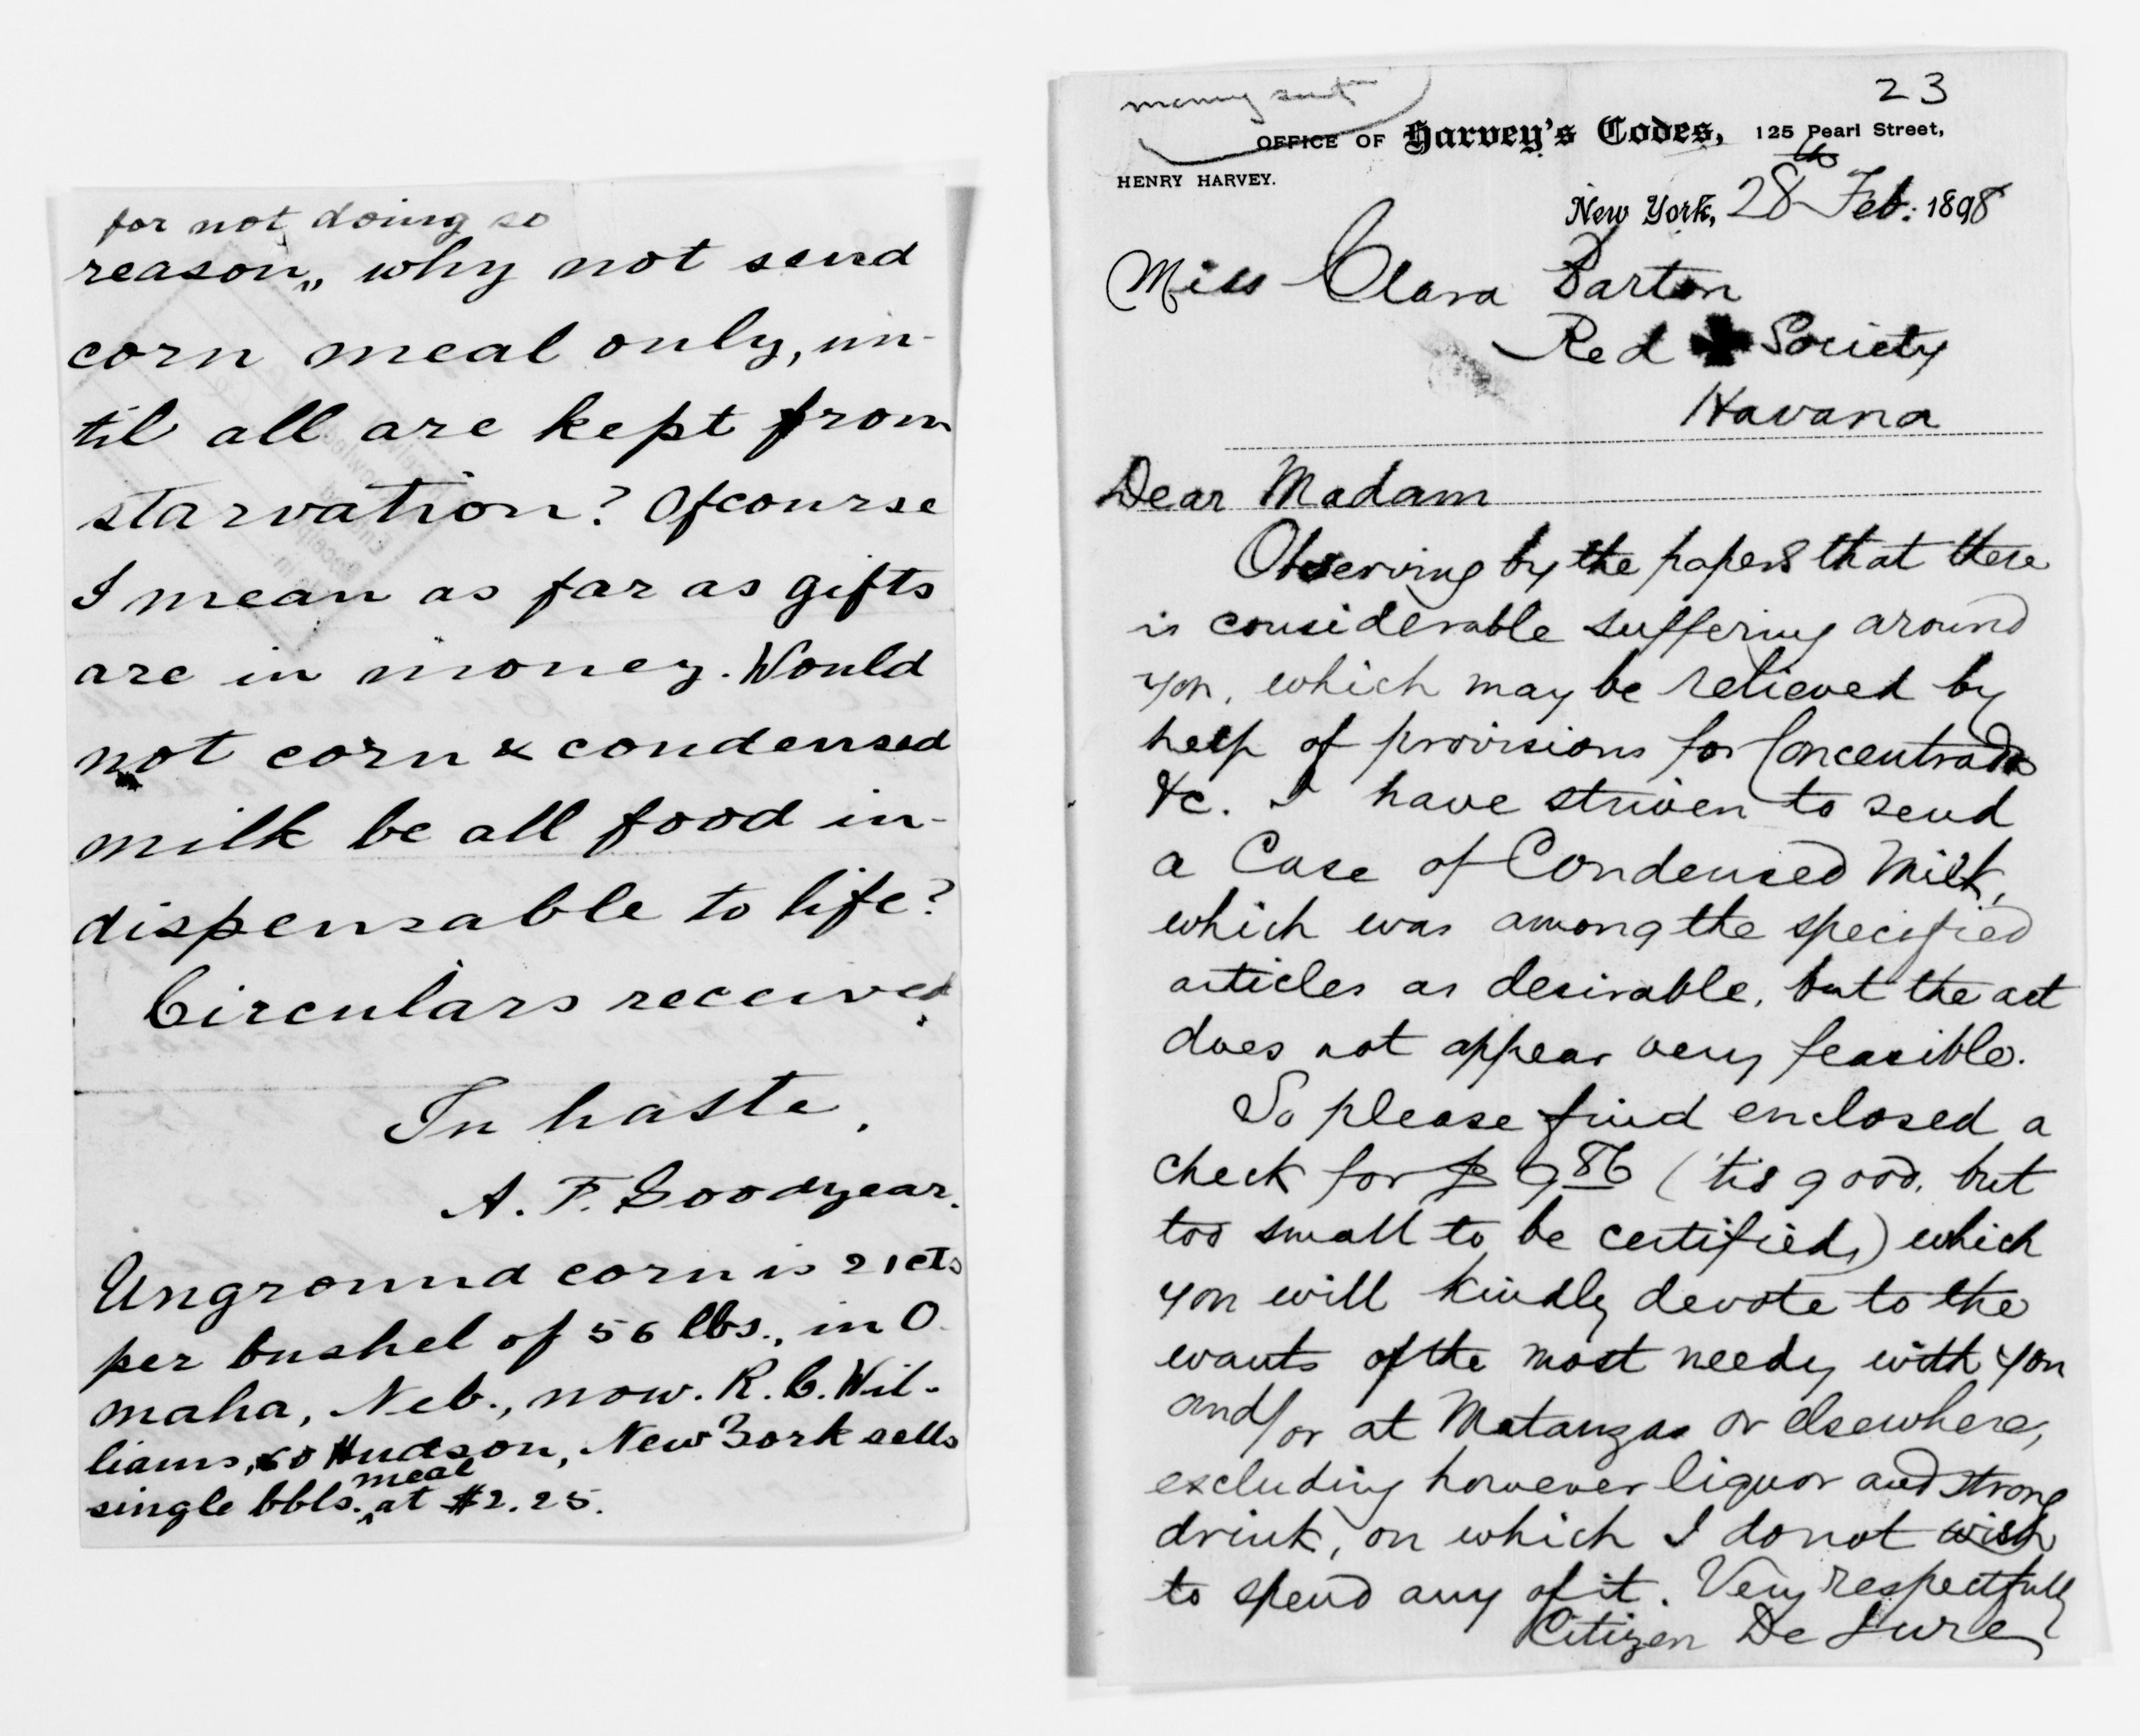 for not doing so
reason,, why not send
corn meal only, un-
til all are kept from
starvation? Ofcourse
I mean as far as gifts
are in money. Would
not corn & condensed
milk be all food in-
dispensable to life?
Circulars received.
In haste,
A. F. Goodyear.
Unground corn is 21cts
per bushel of 56 lbs., in O-
maha, Neb., now. R. C. Wil-
liams, 60 Hudson, New York sells
meal
single bbls. ^ at $2.25.
money sent
23
OFFICE OF Harvey's Codes, 125 Pearl Street,
HENRY HARVEY.
New York, 28th Feb: 1898
Miss Clara Barton
Red ✚ Society
Havana
Dear Madam
Observing by the papers that there
is considerable suffering around
you, which may be relieved by
help of provisions for Concentrados
&c. I have striven to send
a Case of Condensed Milk,
which was among the specified
articles as desirable, but the act
does not appear very feasible.
So please find enclosed a
check for $ 9 86 ('tis good, but
too small to be certified,) which
you will kindly devote to the
wants of the most needy with you
and/or at Matanzas or elsewhere,
excluding however liquor and strong
drink, on which I do not wish
to spend any of it. Very respectfully
Citizen De Jure